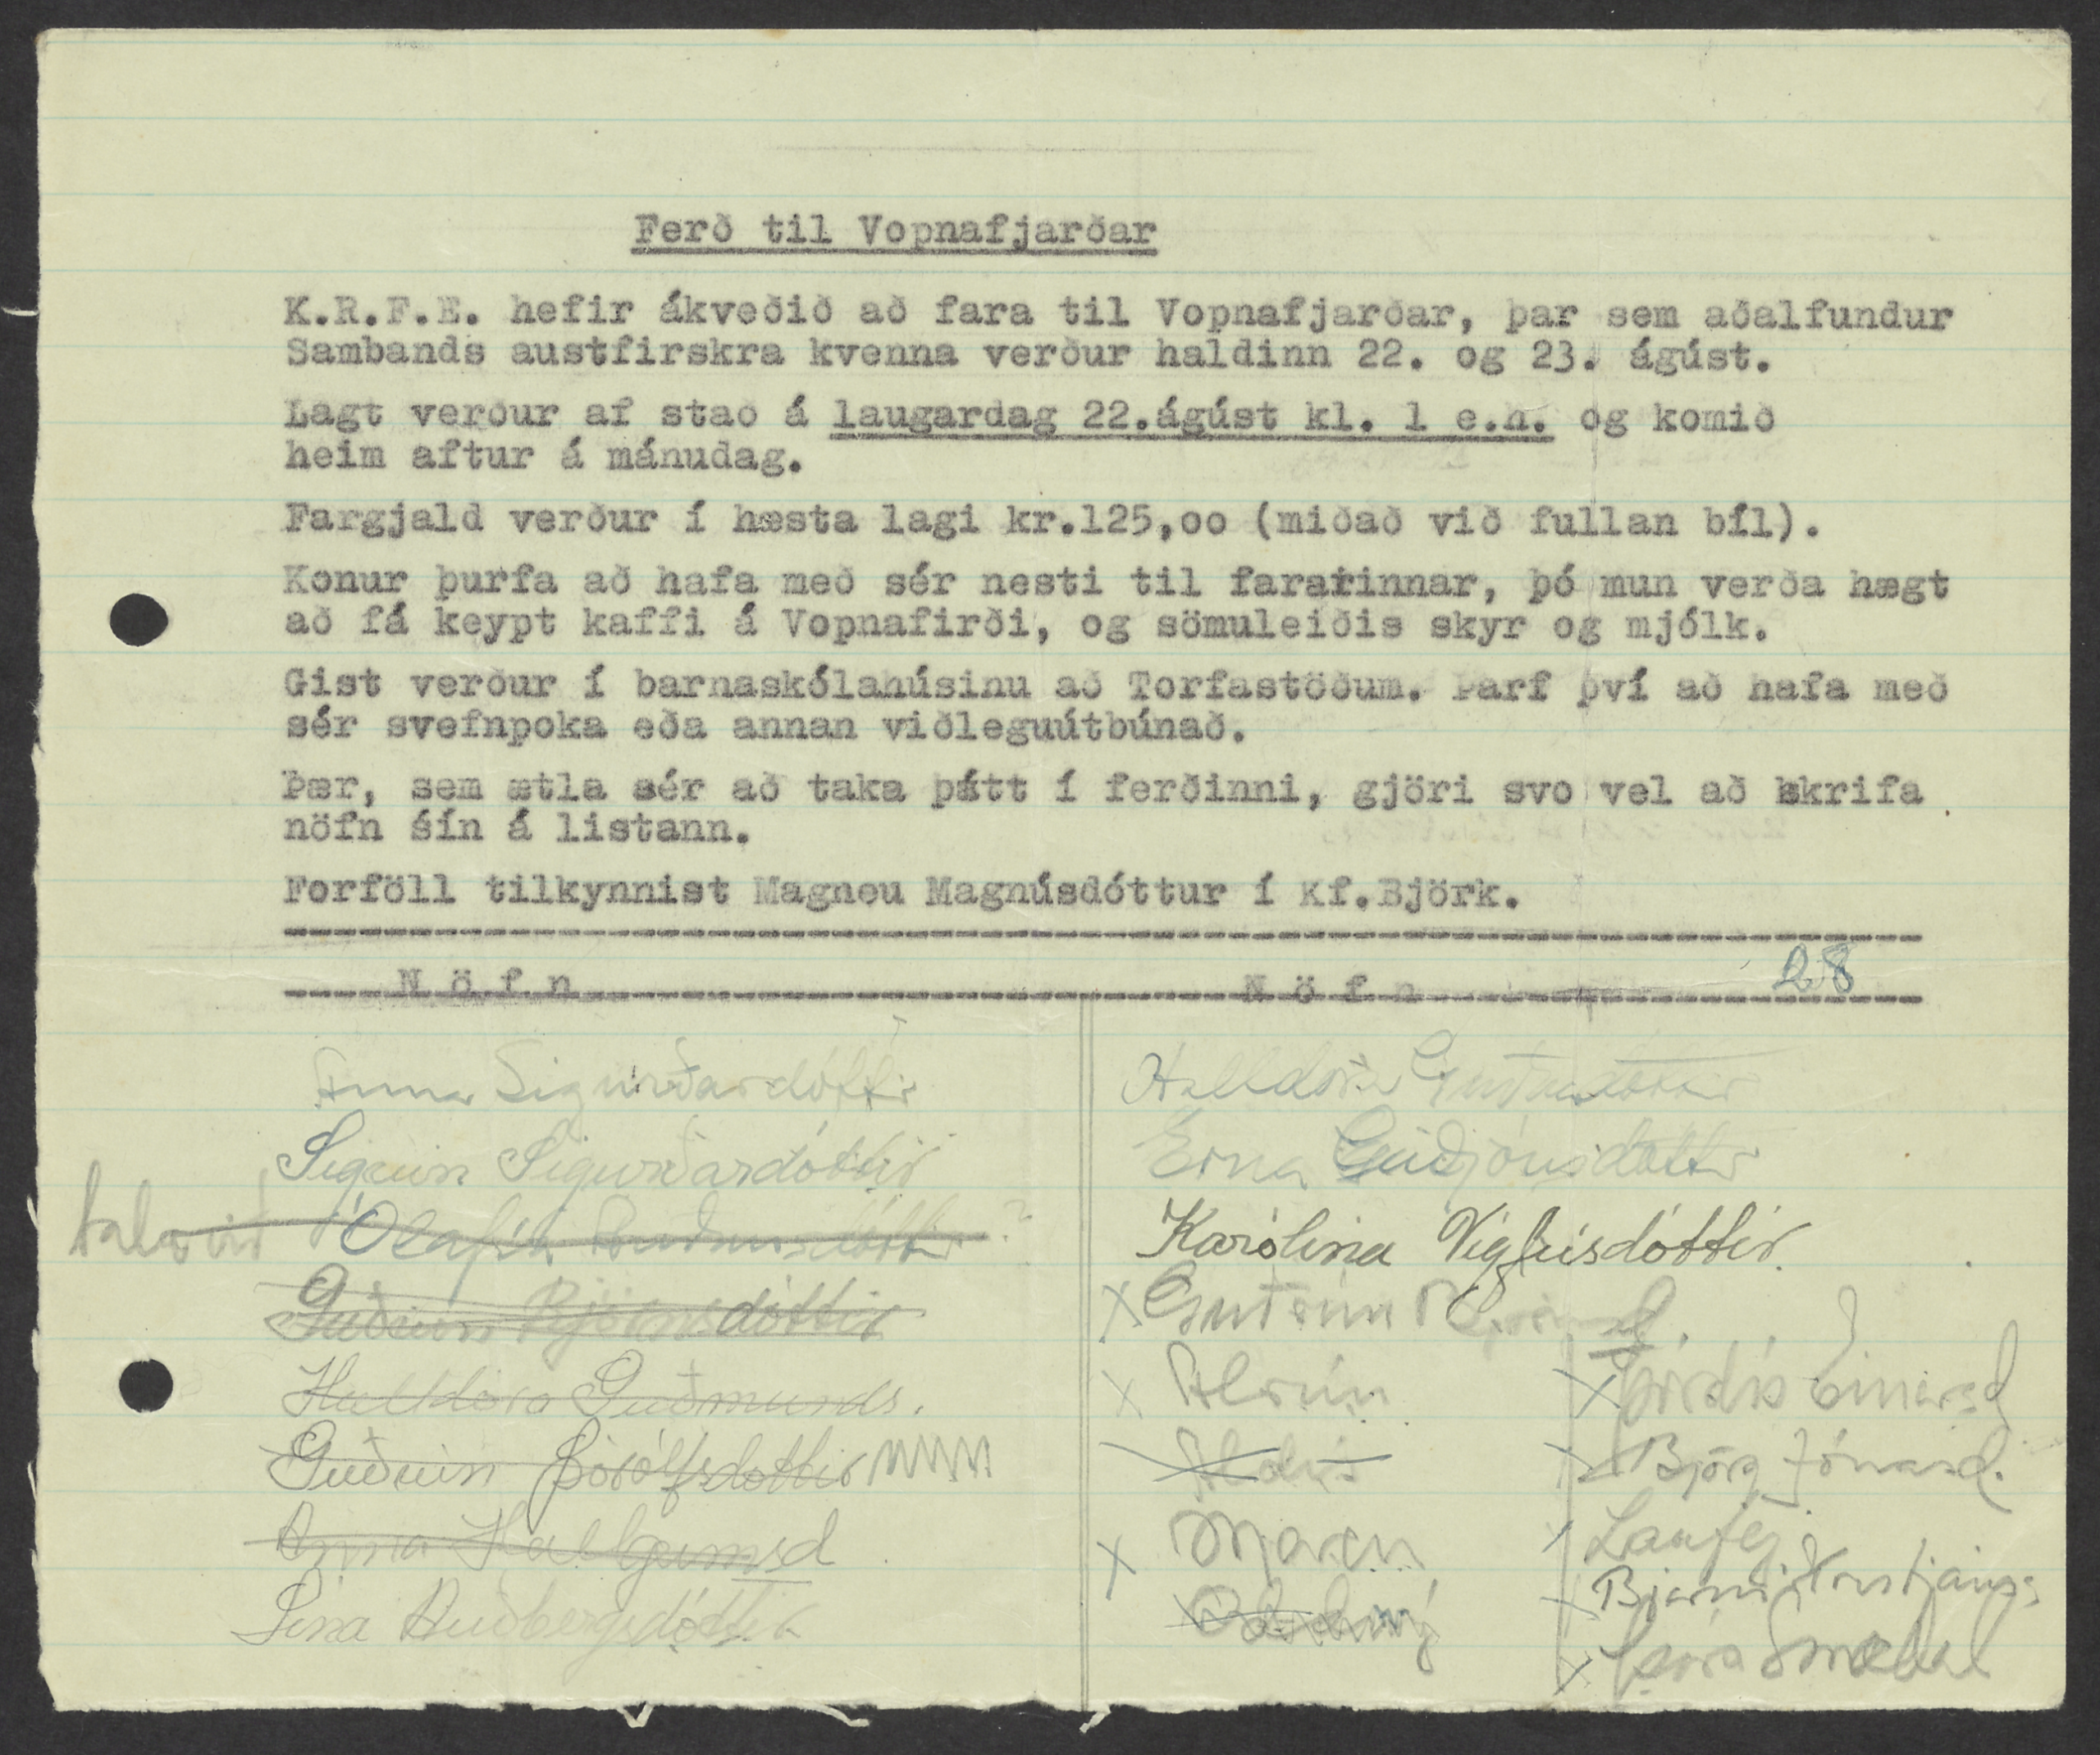 Ferð til Vopnafjarðar
K.R.F.E. hefir ákveðið að fara til Vopnafjarðar, þar sem aðalfundur
Sambands austfirskra kvenna verður haldinn 22. og 23. ágúst.
Lagt verður af stað á laugardag 22.ágúst kl. 1 e.h. og komið
heim aftur á mánudag.
Fargjald verður í hæsta lagi kr.125,oo (miðað við fullan bíl).
Konur þurfa að hafa með sér nesti til fararinnar, þó mun verða hægt
að fá keypt kaffi á Vopnafirði, og sömuleiðis skyr og mjólk.
Gist verður í barnaskólahúsinu að Torfastöðum. Þarf því að hafa með
sér svefnpoka eða annan viðleguútbúnað.
Þær, sem ætla sér að taka þátt í ferðinni, gjöri svo vel að skrifa
nöfn sín á listann.
Forföll tilkynnist Magneu Magnúsdóttur í Kf.Björk.
28
N ö f n
N ö f n
Anna Sigurðardóttir
Sigrún Sigurðardóttir
tala við Ólafíu ?
Guðrún Björnsdóttir
Halldóra Guðmunds.
Guðrún Þórólfsdóttir
Anna Hallgrímsd
Lína Auðbergsdóttir
Halldóra
Erna Guðjónsdóttir
Karólína Vigfúsdóttir.
x Guðrún
x
x Maren
x Þórdís Einarsd
x Björg Jónasd.
x Laufey
x Bjarni Kristjánss
x Þóra